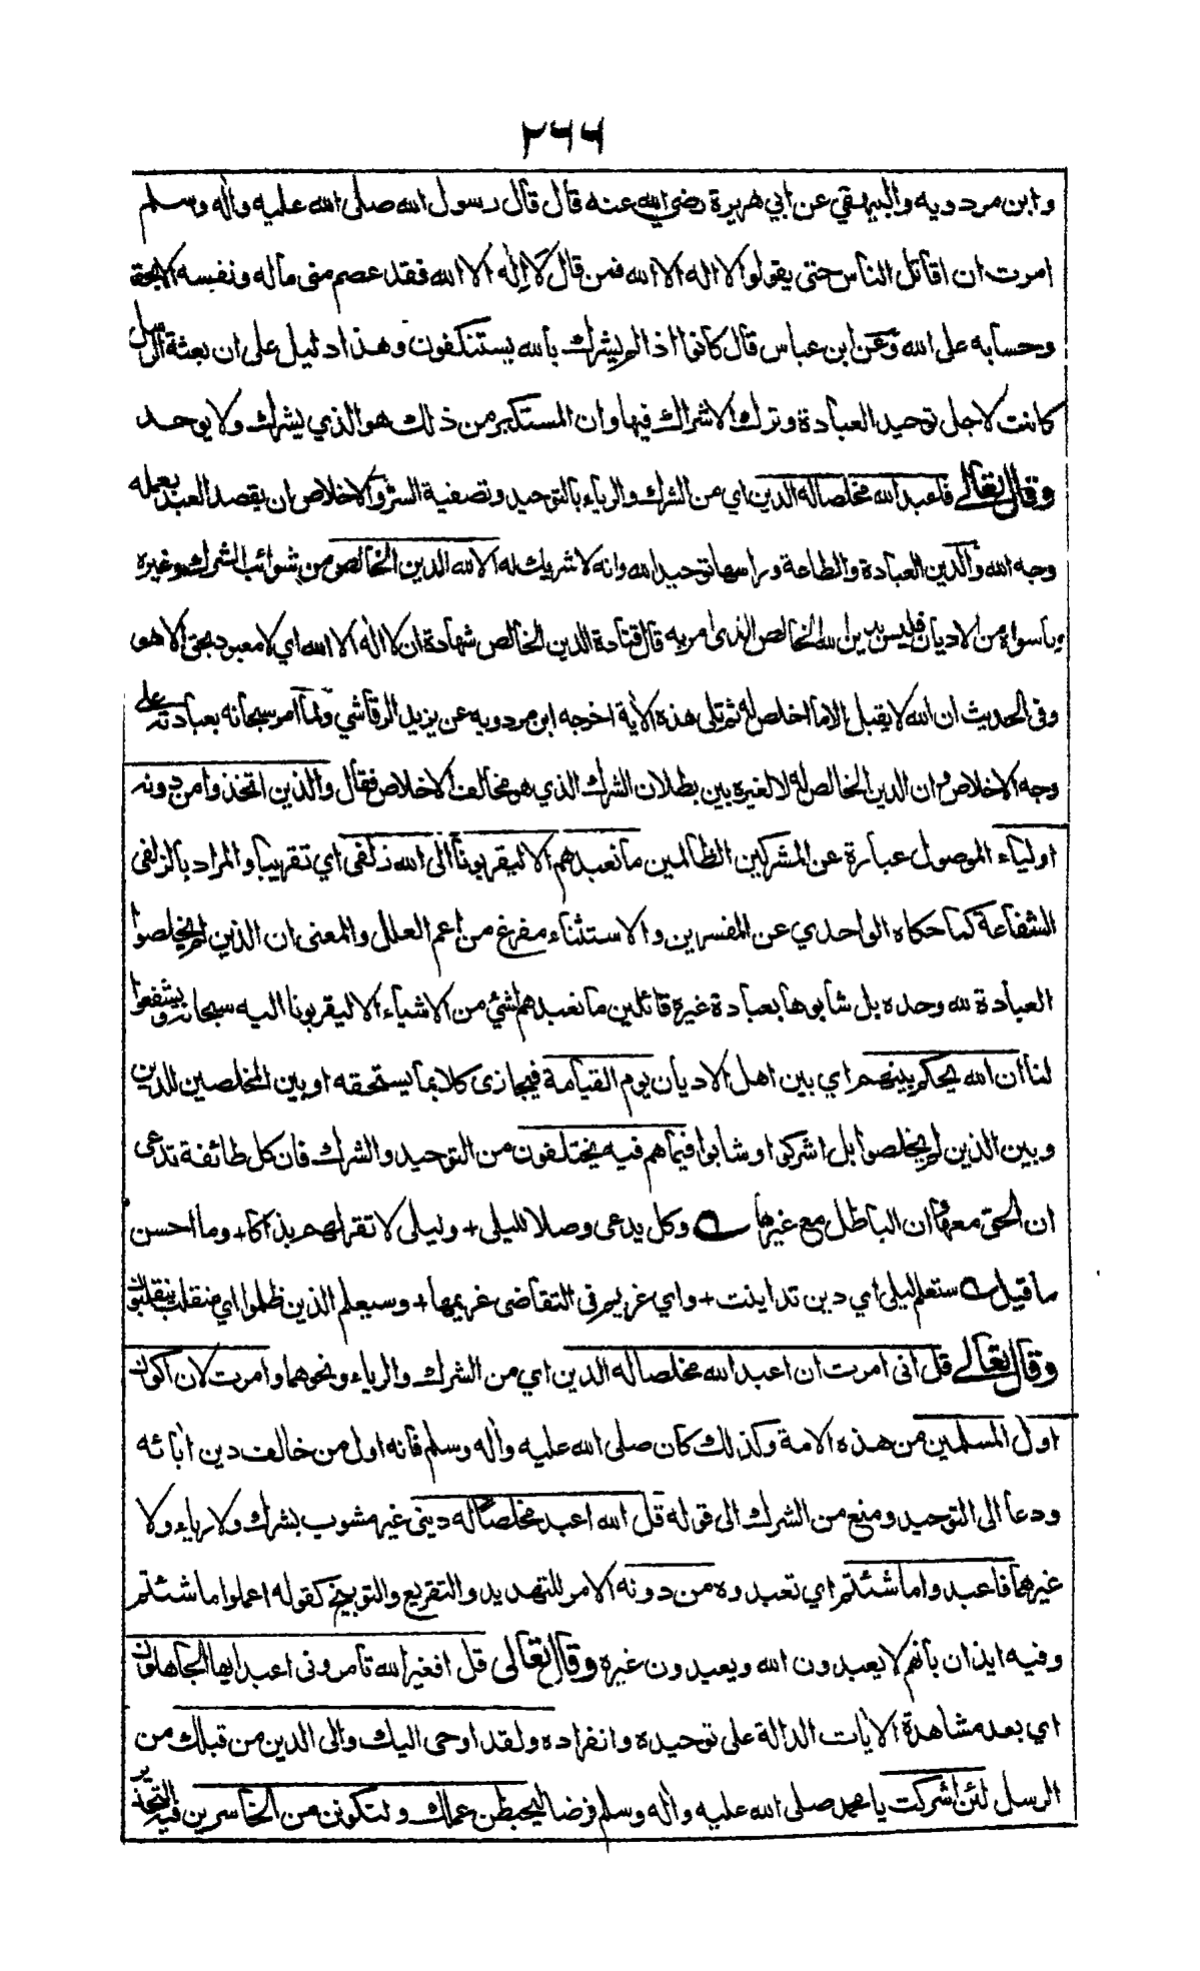 ٢٦٦
وابن مردويه والبيهقي عن ابي هريرة رضي الله عنه قال قال رسول الله صلى الله عليه واٰله وسلم
امرت ان اقاتل الناس حتى يقولوا لا اله الا الله فمن قال لا اله الا الله فقد عصم منى ماله ونفسه الا بحقه
وحسابه على الله وعن ابن عباس قال كانوا اذا لم يشرك بالله يستنكفون وهذا دليل على ان بعثة الرسل
كانت لاجل توحيد العبادة وترك الاشراك فيها وان المستكبر من ذلك هو الذي يشرك ولا يوحد
وقال تعالے فاعبد الله مخلصا له الدين اي من الشرك والرياء بالتوحيد وتصفية السر والاخلاص ان يقصد العبد بعمله
وجه الله والدين العبادة والطاعة وراسها توحيد الله وانه لا شريك له الا لله الدين الخالص من شوائب الشرك وغيره
وما سواه من الاديان فليس بدين الله الخالص الذى امر به قال قتادة الدين الخالص شهادة ان لا اله الا الله اي لا معبود بحق الا هو
وفى الحديث ان الله لا يقبل الا ما اخلص له ثم تلى هذه الاٰية اخرجه ابن مردويه عن يزيد الرقاشي ولما امر سبحانه بعبادته على
وجه الاخلاص وان الدين الخالص له لا لغيره بين بطلان الشرك الذي هو مخالف الاخلاص فقال والذين اتخذوا من دونه
اولياء الموصول عبارة عن المشركين الظالمين ما نعبدهم الا ليقربونا الى الله زلفى اي تقريبا والمراد بالزلفى
الشفاعة كما حكاه الواحدي عن المفسرين والاستثناء مفرغ من اعم العلل والمعنى ان الذين لم يخلصوا
العبادة لله وحده بل شابوها بعبادة غيره قائلين ما نعبدهم لشئ من الاشياء الا ليقربونا اليه سبحانه ويشفعوا
لنا ان الله يحكم بينهم اي بين اهل الاديان يوم القيامة فيجازى كلا بما يستحقه او بين المخلصين للدين
وبين الذين لم يخلصوا بل اشركوا وشابوا فيما هم فيه يختلفون من التوحيد والشرك فان كل طائفة تدعى
ان الحق معها وان الباطل مع غيرها ؎ وكل يدعى وصلا لليلى + وليلى لا تقر لهم بذاكا + وما احسن
ما قيل ؎ ستعلم ليلى اي دين تداينت + واي غريم فى التقاضى غريمها + وسيعلم الذين ظلموا اي منقلب ينقلبون
وقال تعالے قل انى امرت ان اعبد الله مخلصا له الدين اي من الشرك والرياء ونحوهما وامرت لان اكون
اول المسلمين من هذه الامة وكذلك كان صلى الله عليه واٰله وسلم فانه اول من خالف دين اٰبائه
ودعا الى التوحيد ومنع من الشرك الى قوله قل الله اعبد مخلصا له دينى غير مشوب بشرك ولا رياء ولا
غيرهما فاعبدوا ما شئتم اي تعبدوه من دونه الامر للتهديد والتقريع والتوبيخ كقوله اعملوا ما شئتم
وفيه ايذان بانهم لا يعبدون الله ويعبدون غيره وقال تعالى قل افغير الله تأمرونى اعبد ايها الجاهلون
اي بعد مشاهدة الاٰيات الدالة على توحيده وانفراده ولقد اوحى اليك والى الذين من قبلك من
الرسل لئن اشركت يا محمد صلى الله عليه واٰله وسلم فرضا ليحبطن عملك ولتكونن من الخاسرين فيه التحذير